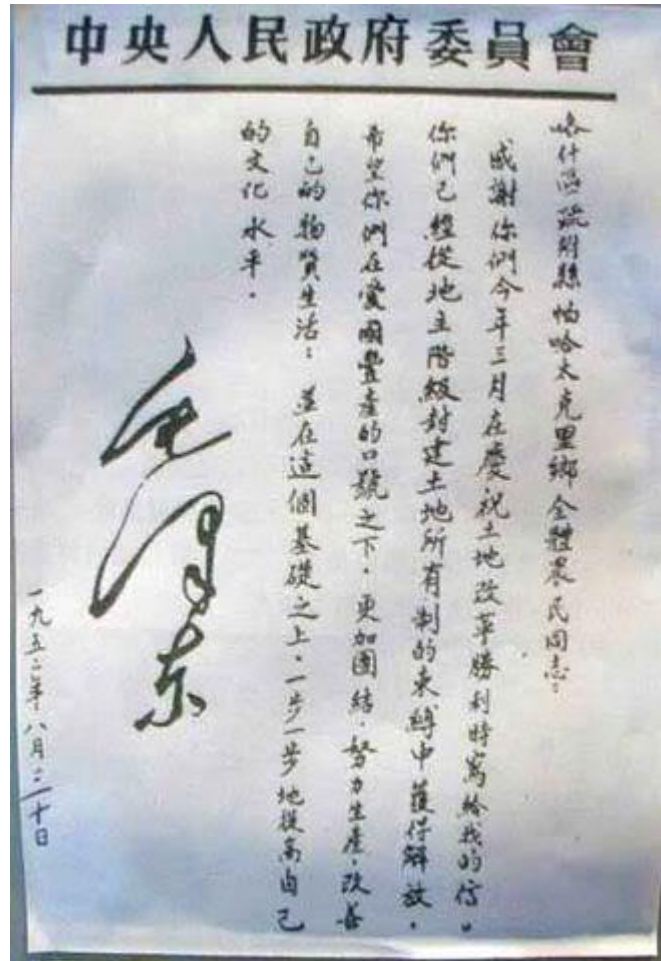 中央人民政府委員會
喀什區疏附縣帕哈太克里鄉全體農民同志：
感謝你們今年三月在慶祝土地改革勝利時寫給我的信。
你們已經從地主階級封建土地所有制的束縛中獲得解放。
希望你們在愛國豐產的口號之下，更加團結，努力生產，改善
自己的物質生活；並在這個基礎之上，一步一步地提高自己
的文化水平。
毛澤东
一九五二年八月三十日